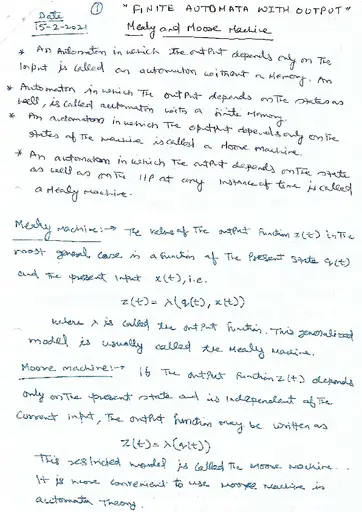 Date
15-2-2021
①
"FINITE AUTOMATA WITH OUTPUT"
Mealy and Moore Machine
* An Automaton in which the output depends only on The
Input is called an automaton without a Memory. An
* Automaton in which The output depends on The states as
well, is called automaton with a finite Memory.
* An automaton in which The output depends only on the
states of The machine is called a Moore Machine.
* An automaton in which The output depends on The state
as well as on The I/P at any instance of time is called
a Mealy machine.
Mealy Machine:→ The value of The output function z(t) in The
most general case is a function of The Present state q(t)
and the present Input x(t), i.e.
z(t) = λ(q(t), x(t))
where λ is called the output function. This generalized
model is usually called the Mealy Machine.
Moore machine:→ If The output function z(t) depends
only on The present state and is independent of The
Current input, The output function may be written as
Z(t) = λ(q(t))
This restricted model is called The Moore machine.
It is more convenient to use moore machine in
automata Theory.